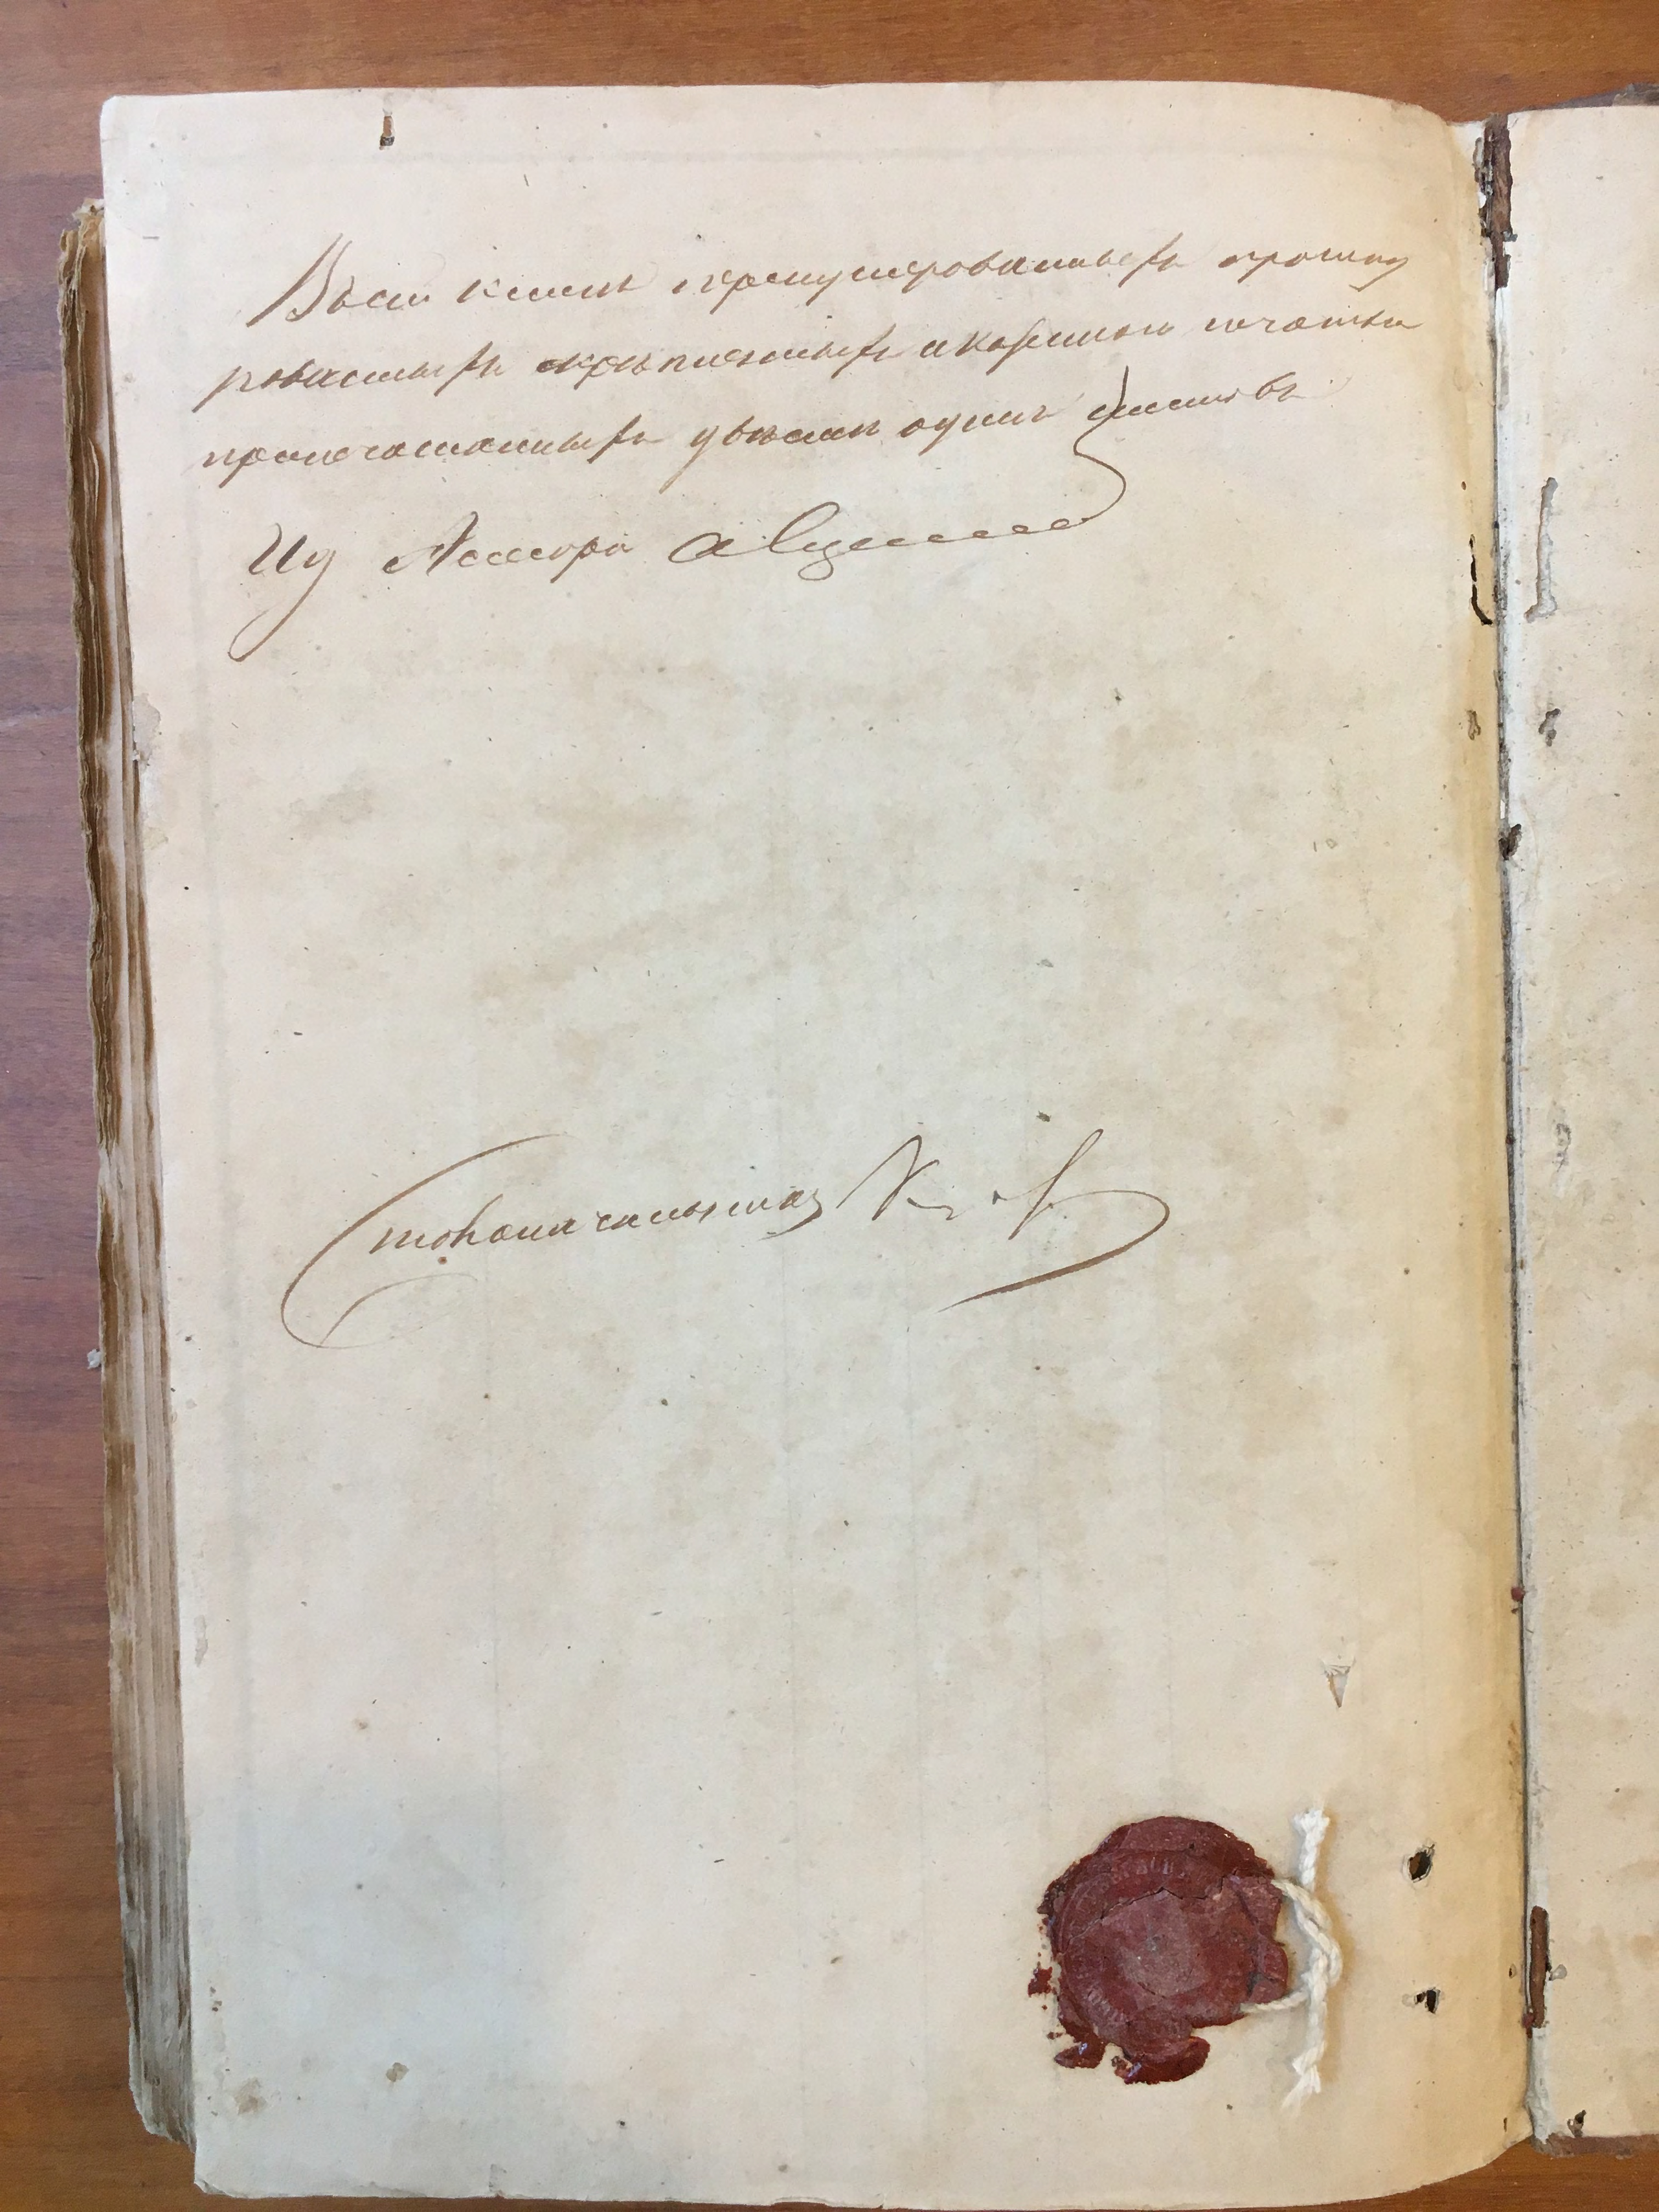 Въсей книгѣ пронумерованныхъ прошну
рованныхъ скрѣпленныхъ и казенною печатью
припечатанныхъ двѣсти одинъ листовъ
Ид Асесора
Столоначальникъ